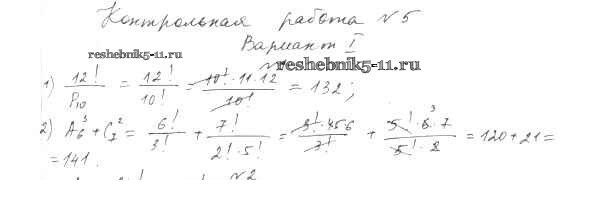 Контрольная работа №5
Вариант I
reshebnik5-11.ru
№1
reshebnik5-11.ru
1) 12!/P₁₀ = 12!/10! = 10!·11·12/10! = 132;
2) A₆³ + C₇² = 6!/3! + 7!/2!·5! = 3!·456/3! + 5!·6³·7/5!·2 = 120+21=
=141.
№2